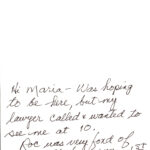 Hi Maria - Was hoping
to be here, but my
lawyer called & wanted to
see me at 10.
Roc was very fond of